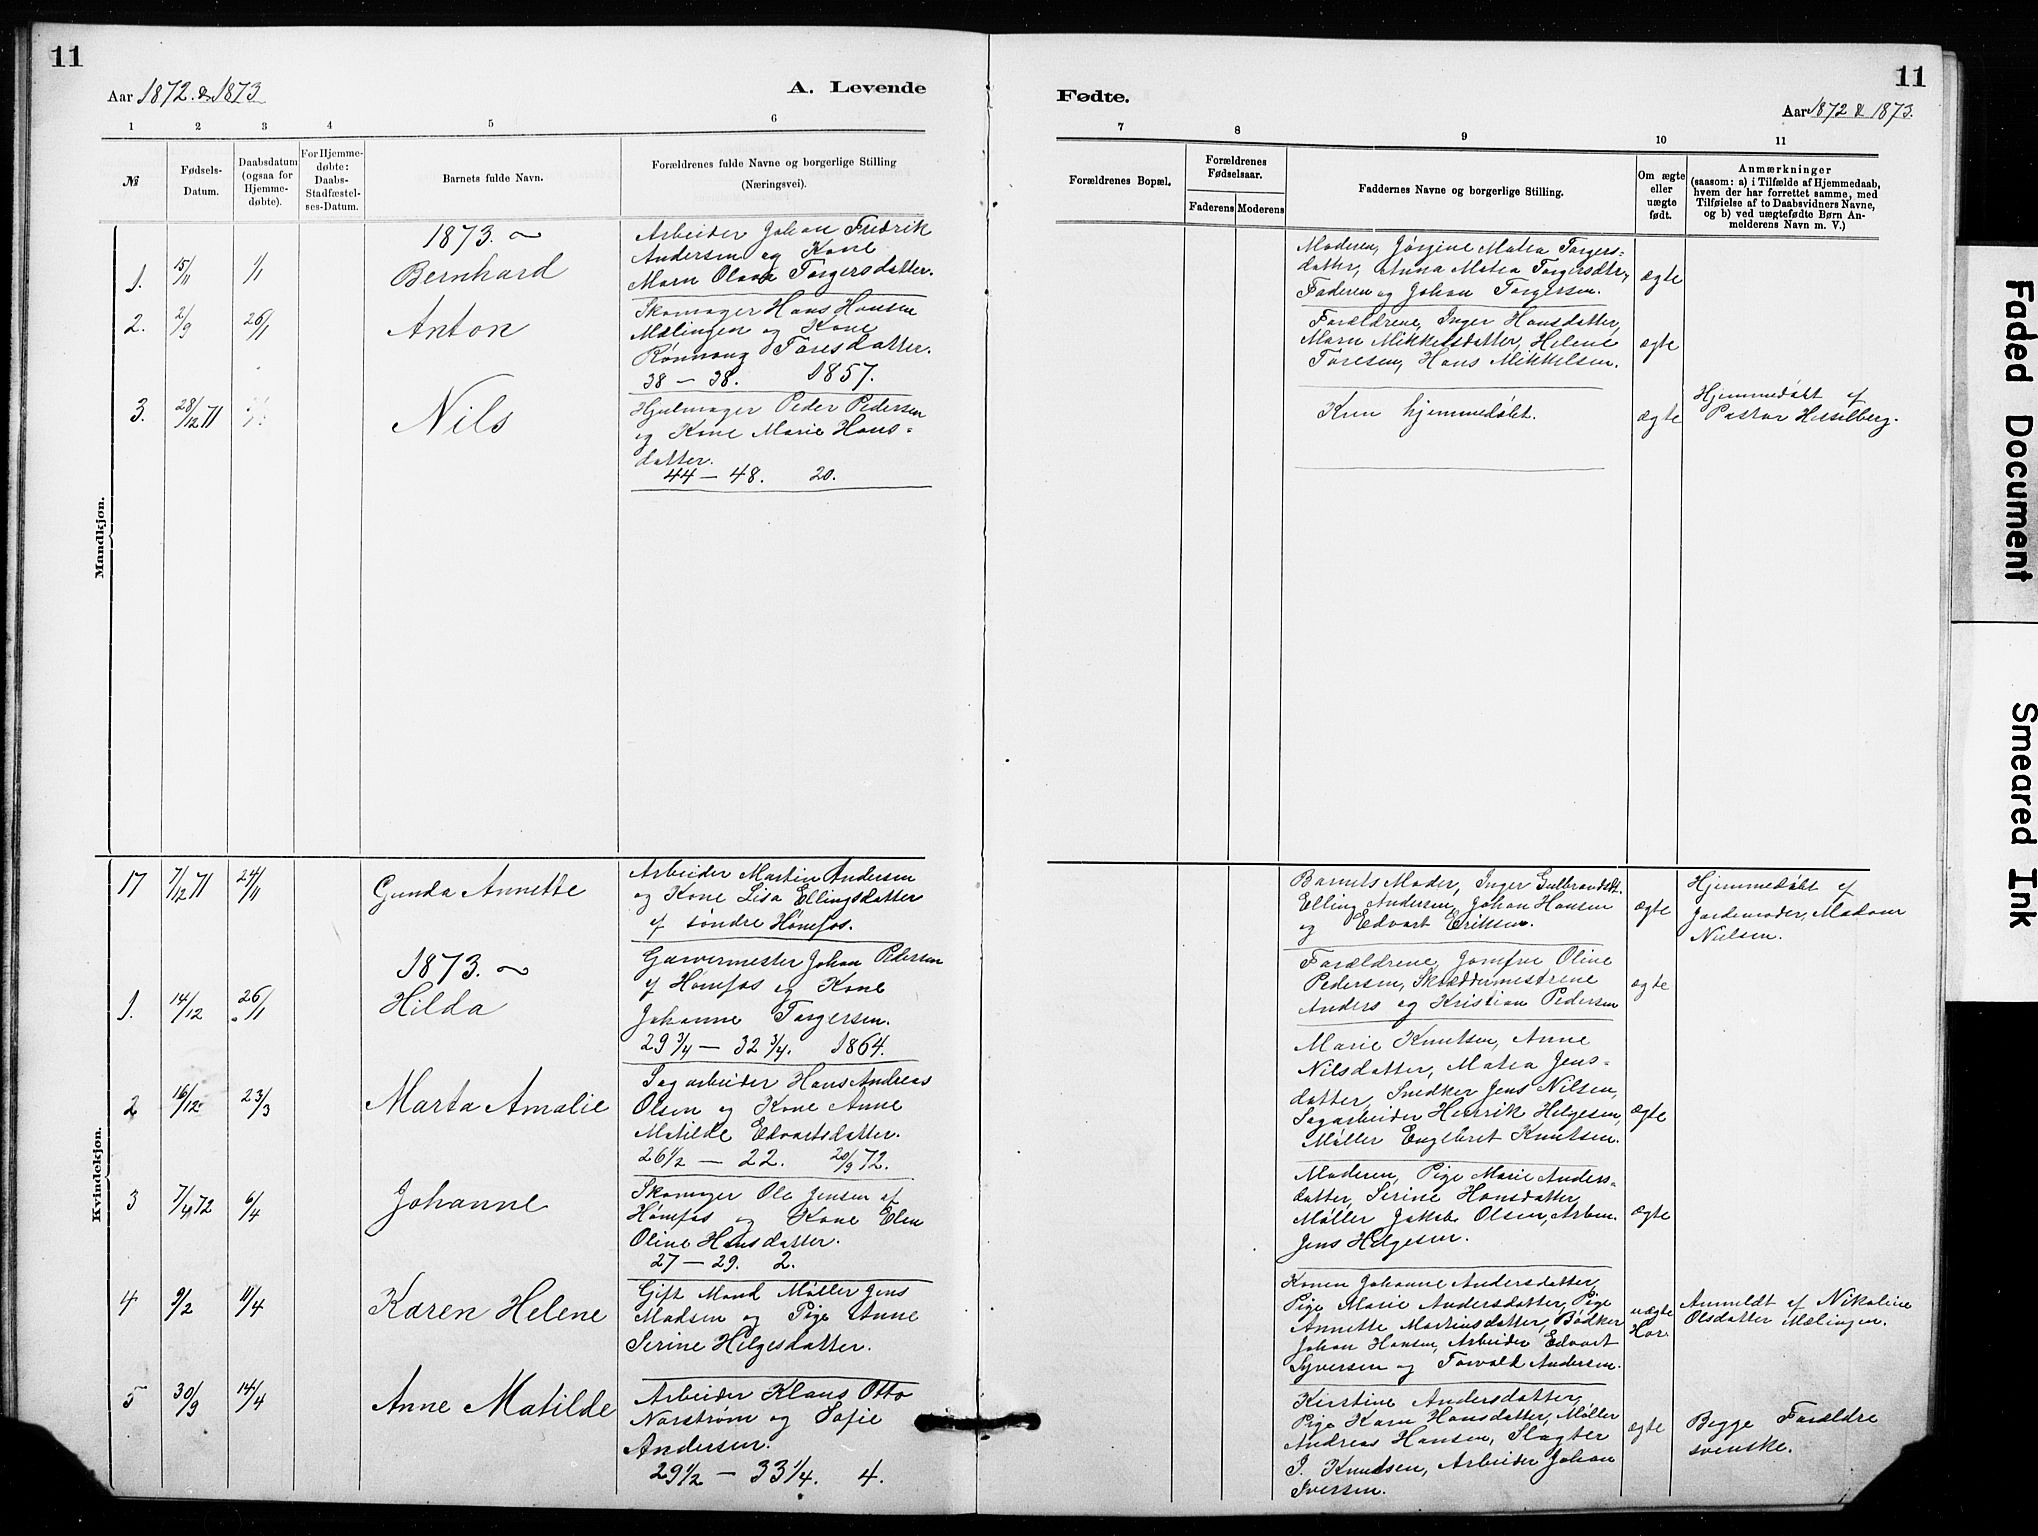 11
Aar 1872 & 1873
A. Levende
1 2 3 4 5 6
№
Fødsels-
Datum.
Daabsdatum
(ogsaa for
Hjemme-
døbte).
For Hjemme-
døbte:
Daabs-
Stadfæstel-
ses-Datum.
Barnets fulde Navn.
Forældrenes fulde Navne og borgerlige Stilling
(Næringsvei).
Mandkjøn.
1873.
1. 15/11 1/1 Bernhard
Arbeider Johan Fredrik
Andersen og Kone
Maren Olava Torgersdatter.
2. 2/9 26/1 Anton
Skomager Hans Hansen
Mælingen og Kone
Rønnaug Toresdatter.
38 — 38. 1857.
3. 28/12 71 Nils
Hjulmager Peder Pedersen
og Kone Marie Hans-
datter.
44 — 48. 20.
Kvindekjøn.
17 7/12 71 24/11 Gunda Annette
Arbeider Martin Andersen
og Kone Lisa Ellingsdatter
af søndre Hønefos.
1873.
1. 14/12 26/1 Hilda
Garvermester Johan Pedersen
af Hønefos og Kone
Johanne Torgersen.
29 3/4 — 32 3/4. 1864.
2 16/12 23/3 Marta Amalie
Sagarbeider Hans Andreas
Olsen og Kone Anne
Matilde Edvartsdatter.
26 1/2 — 22. 20/9 72.
3 7/4 72 6/4 Johanne
Skomager Ole Jensen af
Hønefos og Kone Elen
Oline Hansdatter.
27 — 29. 2.
4 9/2 11/4 Karen Helene
Gift Mand Møller Jens
Madsen og Pige Anne
Serine Helgesdatter.
5 30/9 14/4 Anne Matilde
Arbeider Klaus Otto
Norstrøm og Sofie
Andersen.
29 1/2 — 33 1/4. 4.
11
Fødte.
Aar 1872 & 1873.
7 8 9 10 11
Forældrenes Bopæl.
Forældrenes
Fødselsaar.
Faderens Moderens
Faddernes Navne og borgerlige Stilling.
Om ægte
eller
uægte
født.
Anmærkninger
(saasom: a) i Tilfælde af Hjemmedaab,
hvem der har forrettet samme, med
Tilføielse af to Daabsvidners Navne,
og b) ved uægtefødte Børn An-
melderens Navn m. V.)
Moderen, Jørgine Matea Torgers-
datter, Anna Matea Torgersdtr,
Faderen og Johan Torgersen.
ægte
Forældrene, Inger Hansdatter,
Maren Mikkelsdatter, Helene
Toresen, Hans Mikkelsen.
ægte
Kun hjemmedøbt.
ægte
Hjemmedøbt af
Pastor Hesselberg.
Barnets Moder, Inger Gulbrandsdt.
Elling Andersen, Johan Hansen
og Edvart Eriksen.
ægte
Hjemmedøbt af
Jordemoder, Madam
Nielsen.
Forældrene, Jomfru Oline
Pedersen, Skræddermestrene
Anders og Kristian Pedersen
ægte
Marie Knutsen, Anne
Nilsdatter, Matea Jens-
datter, Snedker Jens Nilsen,
Sagarbeider Henrik Helgesen,
Møller Engebret Knutsen.
ægte
Moderen, Pige Marie Anders-
datter, Serine Hansdatter,
Møller Jakob Olsen, Arben.
Jens Helgesen.
ægte
Konen Johanne Andersdatter,
Pige Marie Andersdatter, Pige
Annette Martinsdatter, Bødker
Johan Hansen, Arbeider Edvart
Syversen og Torvald Andersen.
uægte
Hor.
Anmeldt af Nikoline
Olsdatter Mælingen.
Kirstine Andersdatter,
Pige Karn Hansdatter, Møller
Andreas Hansen, Slagter
I. Knudsen, Arbeider Johan
Iversen.
ægte
Begge Forældre
svenske.
Faded Document
Smeared Ink